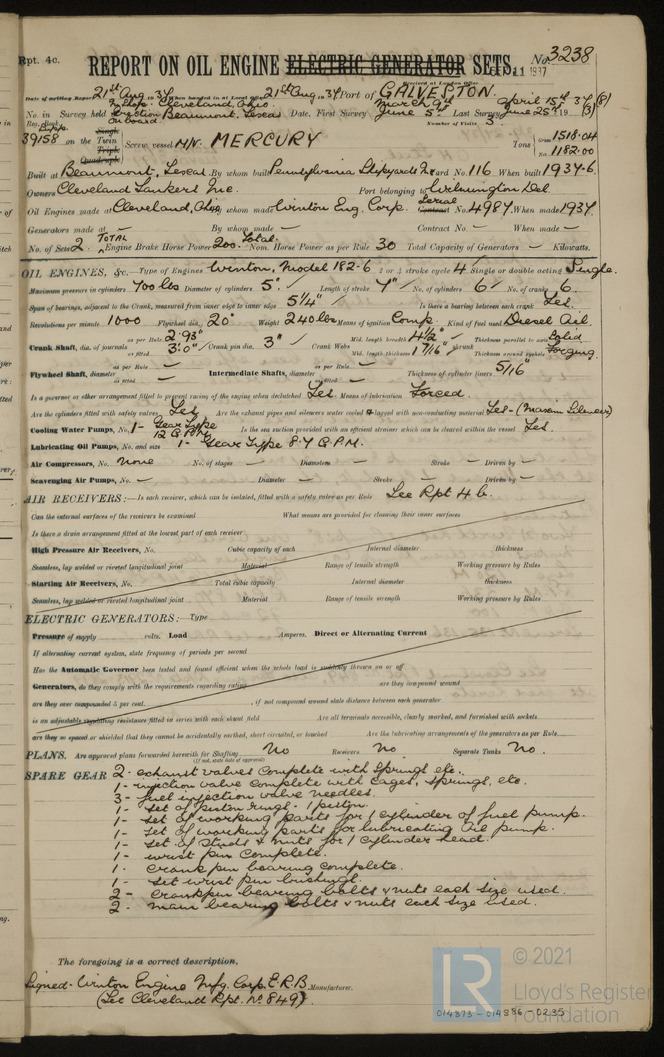 Rpt. 4c.
REPORT ON OIL ENGINE ELECTRIC GENERATOR SETS. No. 3238
Received at London Office 11 1937
Date of writing Report 21st Aug 1937 When handed in at Local Office 21st Aug. 1937 Port of GALVESTON.
No. in Survey held Cleveland, Ohio. Beaumont, Texas. Date, First Survey March 9th June 5th Last Survey April 15th 37 (8) June 25th 19 (3)
Reg. Book. Number of Visits
39158 on the Single Twin Triple Quadruple Screw vessel M/V. MERCURY Tons Gross 1518.04 Net 1182.00
Built at Beaumont, Texas. By whom built Pennsylvania Shipyards Inc. Yard No. 116 When built 1937-6.
Owners Cleveland Tankers Inc. Port belonging to Wilmington Del.
Oil Engines made at Cleveland, Ohio By whom made Winton Eng. Corp. Serial Contract No. 4987 When made 1937
Generators made at — By whom made — Contract No. — When made —
No. of Sets 2 Total Engine Brake Horse Power 200 Total. Nom. Horse Power as per Rule 30 Total Capacity of Generators — Kilowatts.
OIL ENGINES, &c.—Type of Engines Winton, Model 182-6 2 or 4 stroke cycle 4 Single or double acting Single.
Maximum pressure in cylinders 700 lbs Diameter of cylinders 5" Length of stroke 7" No. of cylinders 6 No. of cranks 6.
Span of bearings, adjacent to the Crank, measured from inner edge to inner edge 5 1/4" Is there a bearing between each crank Yes.
Revolutions per minute 1000 Flywheel dia. 20" Weight 240 lbs Means of ignition Comp. Kind of fuel used Diesel Oil.
Crank Shaft, dia. of journals as per Rule 2.93" as fitted 3.0" Crank pin dia. 3" Crank Webs Mid. length breadth 4 1/2" Mid. length thickness 1 7/16" shrunk Thickness parallel to axis Solid Thickness around eyehole Forging.
Flywheel Shaft, diameter as per Rule — as fitted — Intermediate Shafts, diameter as per Rule — as fitted — Thickness of cylinder liners 5/16"
Is a governor or other arrangement fitted to prevent racing of the engine when declutched Yes. Means of lubrication Forced.
Are the cylinders fitted with safety valves Yes Are the exhaust pipes and silencers water cooled or lagged with non-conducting material Yes - (Maxim Silencer)
Cooling Water Pumps, No. 1 - Gear Type 12 G.P.M. Is the sea suction provided with an efficient strainer which can be cleared within the vessel Yes.
Lubricating Oil Pumps, No. and size 1 - Gear Type 8.7 G.P.M.
Air Compressors, No. None No. of stages — Diameters — Stroke — Driven by —
Scavenging Air Pumps, No. — Diameter — Stroke — Driven by —
AIR RECEIVERS:—Is each receiver, which can be isolated, fitted with a safety valve as per Rule See Rpt 4 b.
Can the internal surfaces of the receivers be examined What means are provided for cleaning their inner surfaces
Is there a drain arrangement fitted at the lowest part of each receiver
High Pressure Air Receivers, No. Cubic capacity of each Internal diameter thickness
Seamless, lap welded or riveted longitudinal joint Material Range of tensile strength Working pressure by Rules
Starting Air Receivers, No. Total cubic capacity Internal diameter thickness
Seamless, lap welded or riveted longitudinal joint Material Range of tensile strength Working pressure by Rules
ELECTRIC GENERATORS:—Type
Pressure of supply volts. Load Amperes. Direct or Alternating Current
If alternating current system, state frequency of periods per second
Has the Automatic Governor been tested and found efficient when the whole load is suddenly thrown on or off
Generators, do they comply with the requirements regarding rating are they compound wound
are they over compounded 5 per cent. , if not compound wound state distance between each generator
is an adjustable regulating resistance fitted in series with each shunt field Are all terminals accessible, clearly marked, and furnished with sockets
are they so spaced or shielded that they cannot be accidentally earthed, short circuited, or touched Are the lubricating arrangements of the generators as per Rule
PLANS. Are approved plans forwarded herewith for Shafting No Receivers No Separate Tanks No.
(If not, state date of approval)
SPARE GEAR 2 - exhaust valves complete with springs etc.
1 - injection valve complete with cages, springs, etc.
3 - fuel injection valve needles.
1 - set of piston rings - 1 piston.
1 - set of working parts for 1 cylinder of fuel pump.
1 - set of working parts for lubricating oil pump.
1 - set of studs & nuts for 1 cylinder head.
1 - wrist pin complete.
1 - crank pin bearing complete.
1 - set wrist pin bushings.
2 - crankpin bearing bolts & nuts each size used.
2 - main bearing bolts & nuts each size used.
The foregoing is a correct description,
Signed - Winton Engine Mfg. Corp. E.R.B. Manufacturer.
(See Cleveland Rpt. No 849).
LR © 2021
Lloyd's Register
Foundation
014373-014386-0235